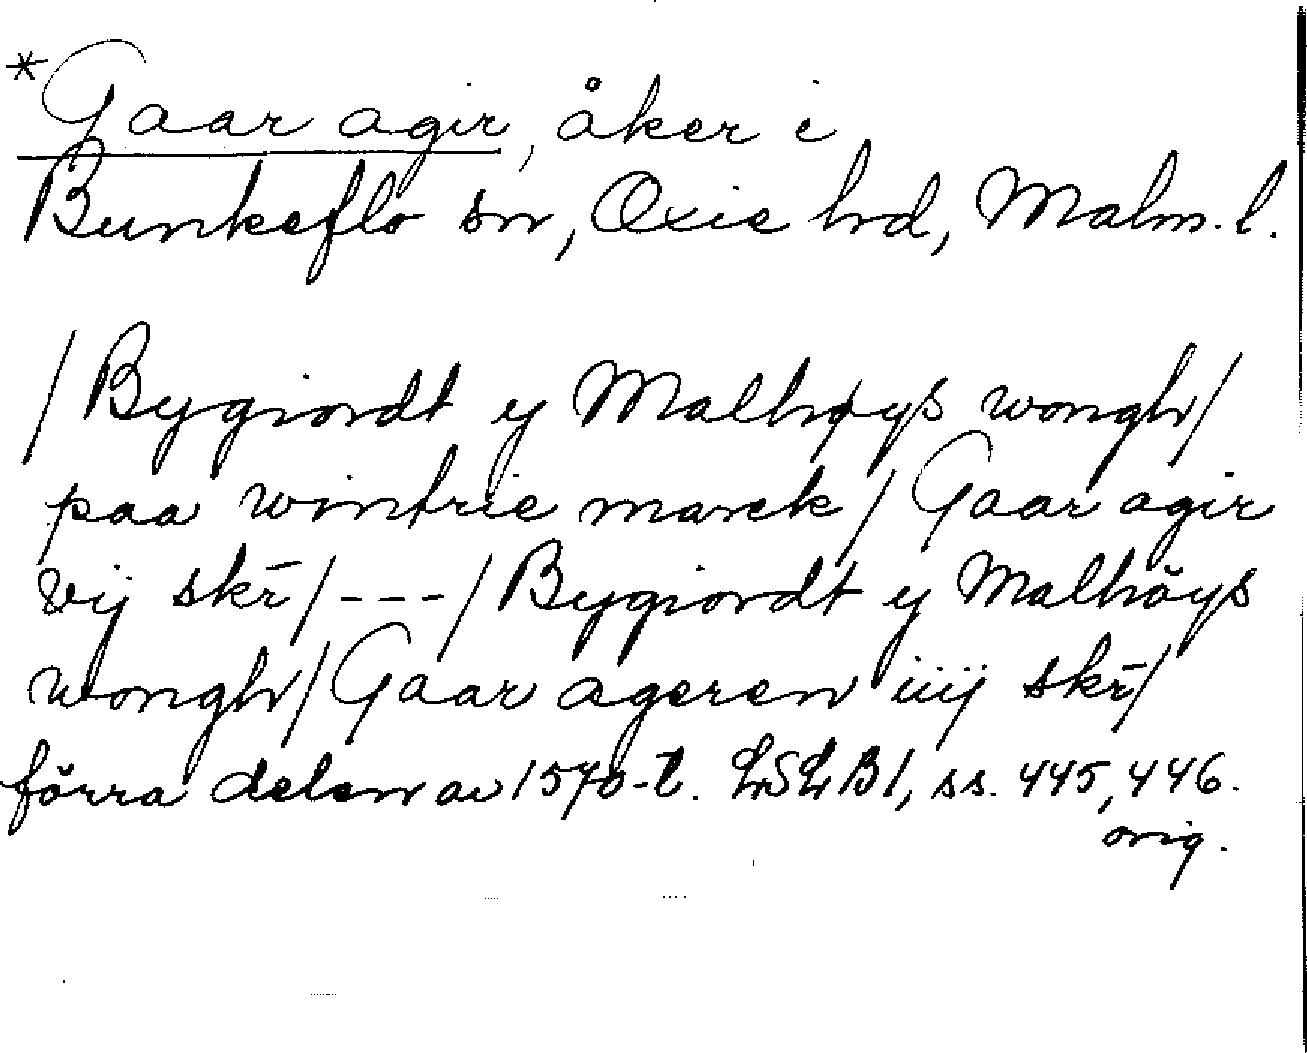 *Gaar agir, åker i
Bunkeflo sn, Oxie hd, Malm. l.
/Bygiordt y Malhøys wongh/
paa wintrie marck/Gaar agir
vij skr̄/---/Bygiordt y Malhöys
wongh/Gaar ageren iiij skr̄/
förra delen av 1570-t. LSLB1, ss. 445, 446.
orig.